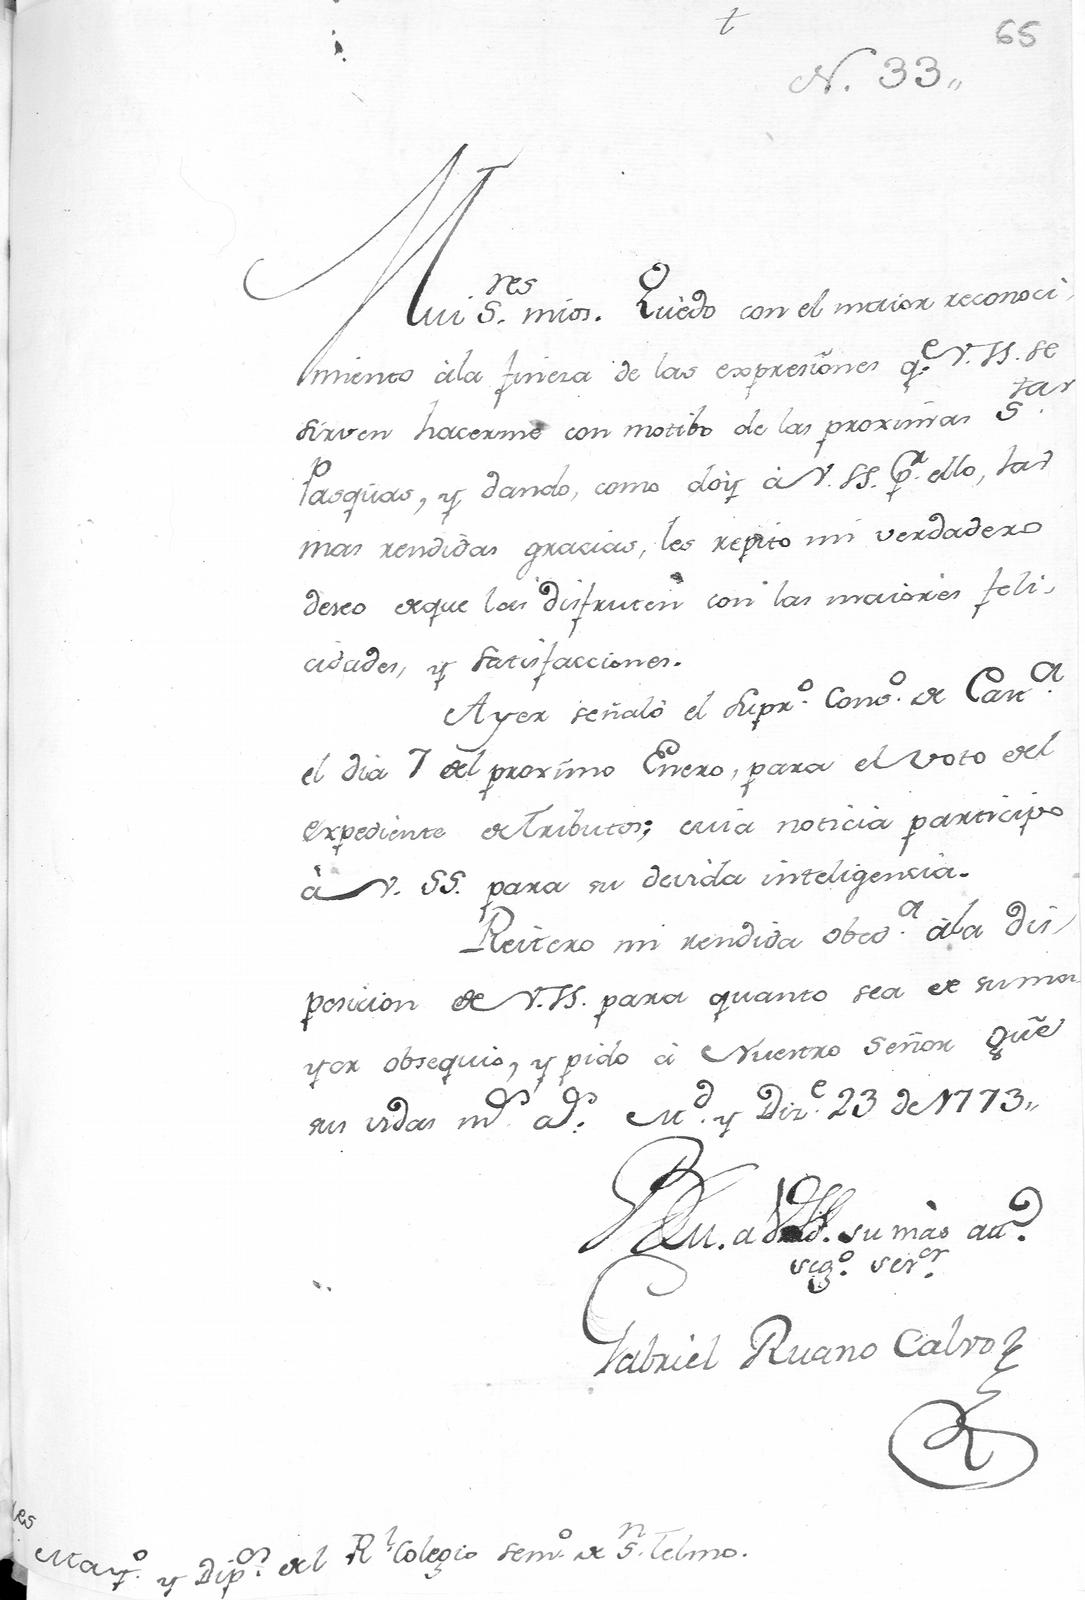 t
65
N. 33,,
Mui S.res mios. Quedo con el maior reconoci-
miento àla fineza de las expresiones q.e V.SS. se
sirven hacerme con motibo de las proximas S.tas
Pasquas, y dando, como doy à V.SS. p.r ello, las
mas rendidas gracias, les repito mi verdadero
deseo de que las disfruten con las maiores feli-
cidades, y satisfacciones.
Ayer señalò el Supr.o Cons.o de Cast.a
el dia 7 del proximo Enero, para el voto del
expediente de Tributos; cuia noticia participo
à V. SS. para su devida inteligencia.
Reitero mi rendida obed.a àla dis-
posicion de V.SS. para quanto sea de su ma-
yor obsequio, y pido à Nuestro Señor gũe
sus vidas m.s a.s M.d y Diz.e 23 de 1773,,
BLM. a V.SS. su màs at.o
seg.o ser.or
Gabriel Ruano Calvo
res
May.o y Dip.on del R.l Colegio Sem.o de S.n Telmo.